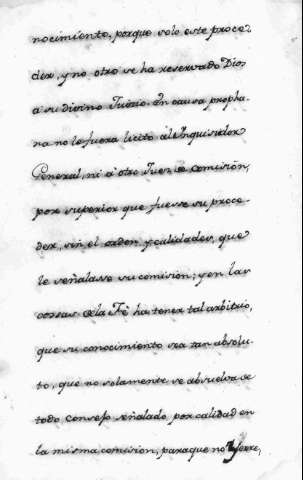 nocimiento, porque solo este proce-
der, y no otro se ha reservado Dios
a su divino Juicio. En causa propha-
na no le fuera licito al Inquisidor
General, ni á otro Juez de comision,
por superior que fuesse su proce-
der, sin el orden y calidades, que
le señalasse su comision; y en las
cossas de la Fè ha tener tal arbitrio,
que su conocimiento sea tan absolu-
to, que no solamente se absuelva de
todo Consejo señalado por calidad en
la misma comision, para que no